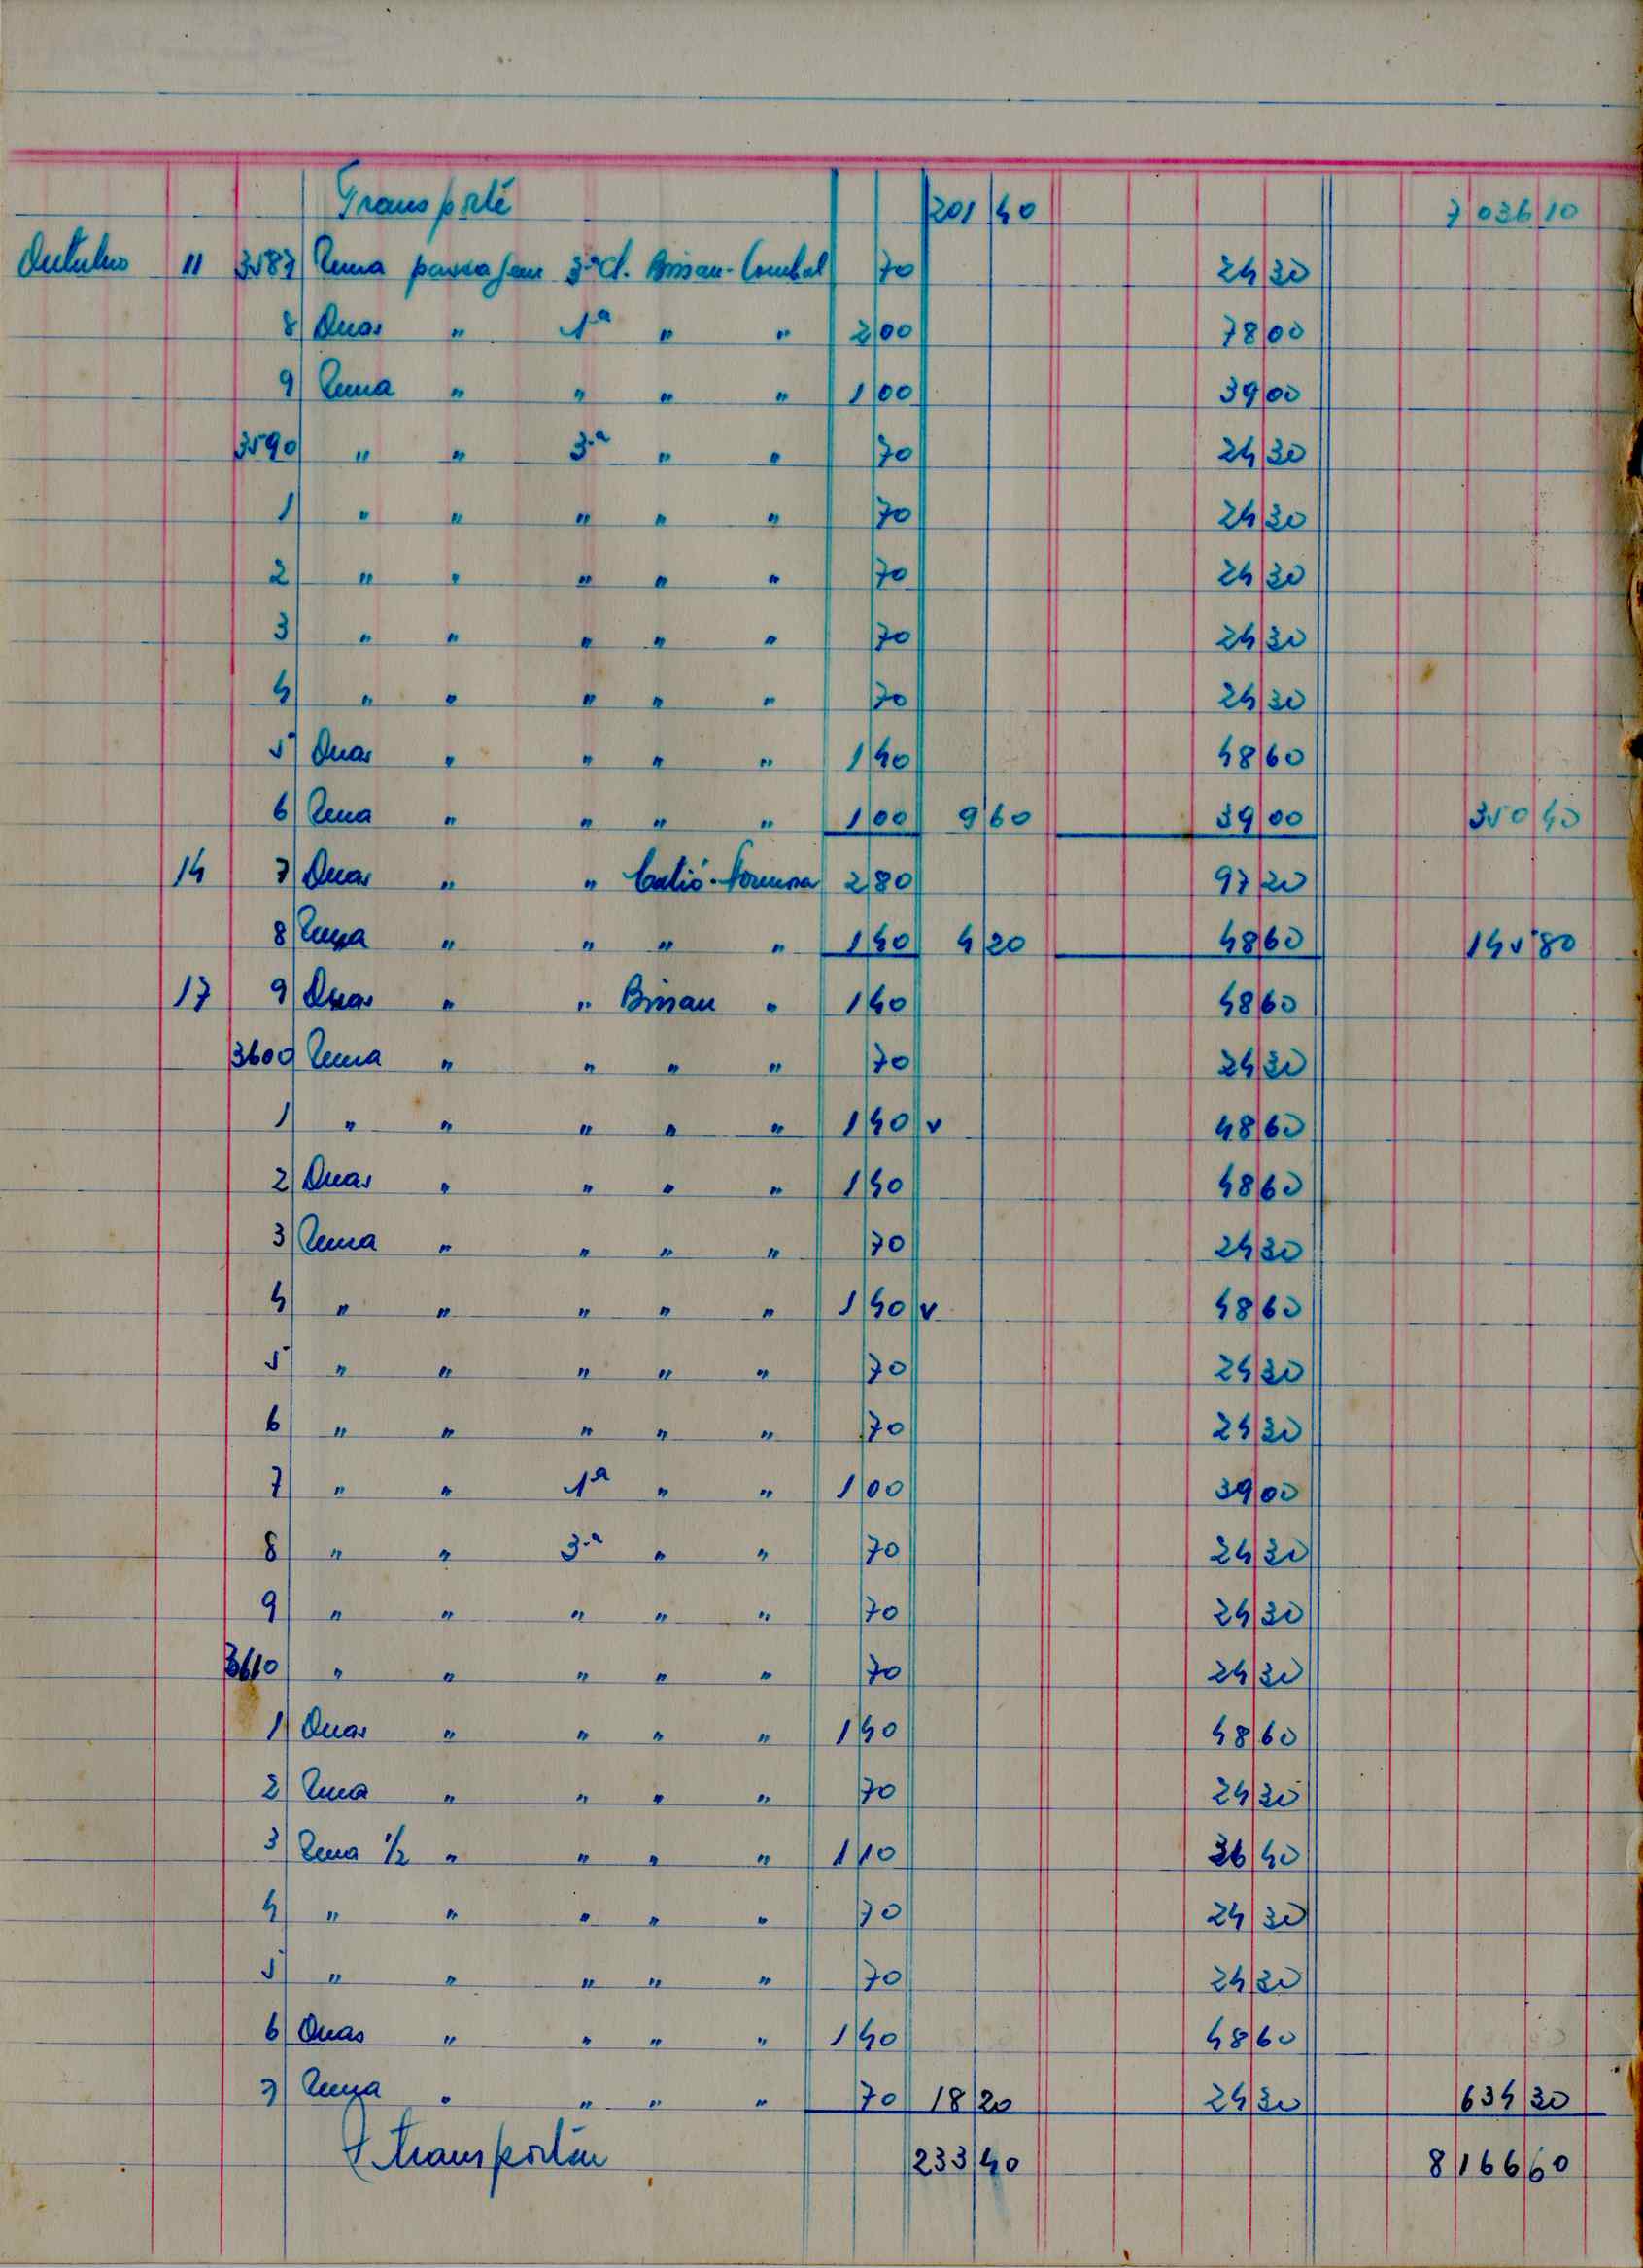 Transporte 201 40 7 036 10
Outubro 11 3587 Uma passagem 3.ª cl. Bissau-Cumbal 70 24 30
8 Duas " 1ª " " 2 00 78 00
9 Uma " " " " 1 00 39 00
3590 " " 3.ª " " 70 24 30
1 " " " " " 70 24 30
2 " " " " " 70 24 30
3 " " " " " 70 24 30
4 " " " " " 70 24 30
5 Duas " " " " 1 40 48 60
6 Uma " " " " 1 00 9 60 39 00 350 40
14 7 Duas " " Catió-Formosa 2 80 97 20
8 Uma " " " " 1 40 4 20 48 60 145 80
17 9 Duas " " Bissau " 1 40 48 60
3600 Uma " " " " 70 24 30
1 " " " " " 1 40 v 48 60
2 Duas " " " " 1 40 48 60
3 Uma " " " " 70 24 30
4 " " " " " 1 40 v 48 60
5 " " " " " 70 24 30
6 " " " " " 70 24 30
7 " " 1ª " " 1 00 39 00
8 " " 3.ª " " 70 24 30
9 " " " " " 70 24 30
3610 " " " " " 70 24 30
1 Duas " " " " 1 40 48 60
2 Uma " " " " 70 24 30
3 Uma 1/2 " " " " 1 10 36 40
4 " " " " " 70 24 30
5 " " " " " 70 24 30
6 Duas " " " " 1 40 48 60
7 Uma " " " " 70 18 20 24 30 634 30
A transportar 233 40 8 166 60